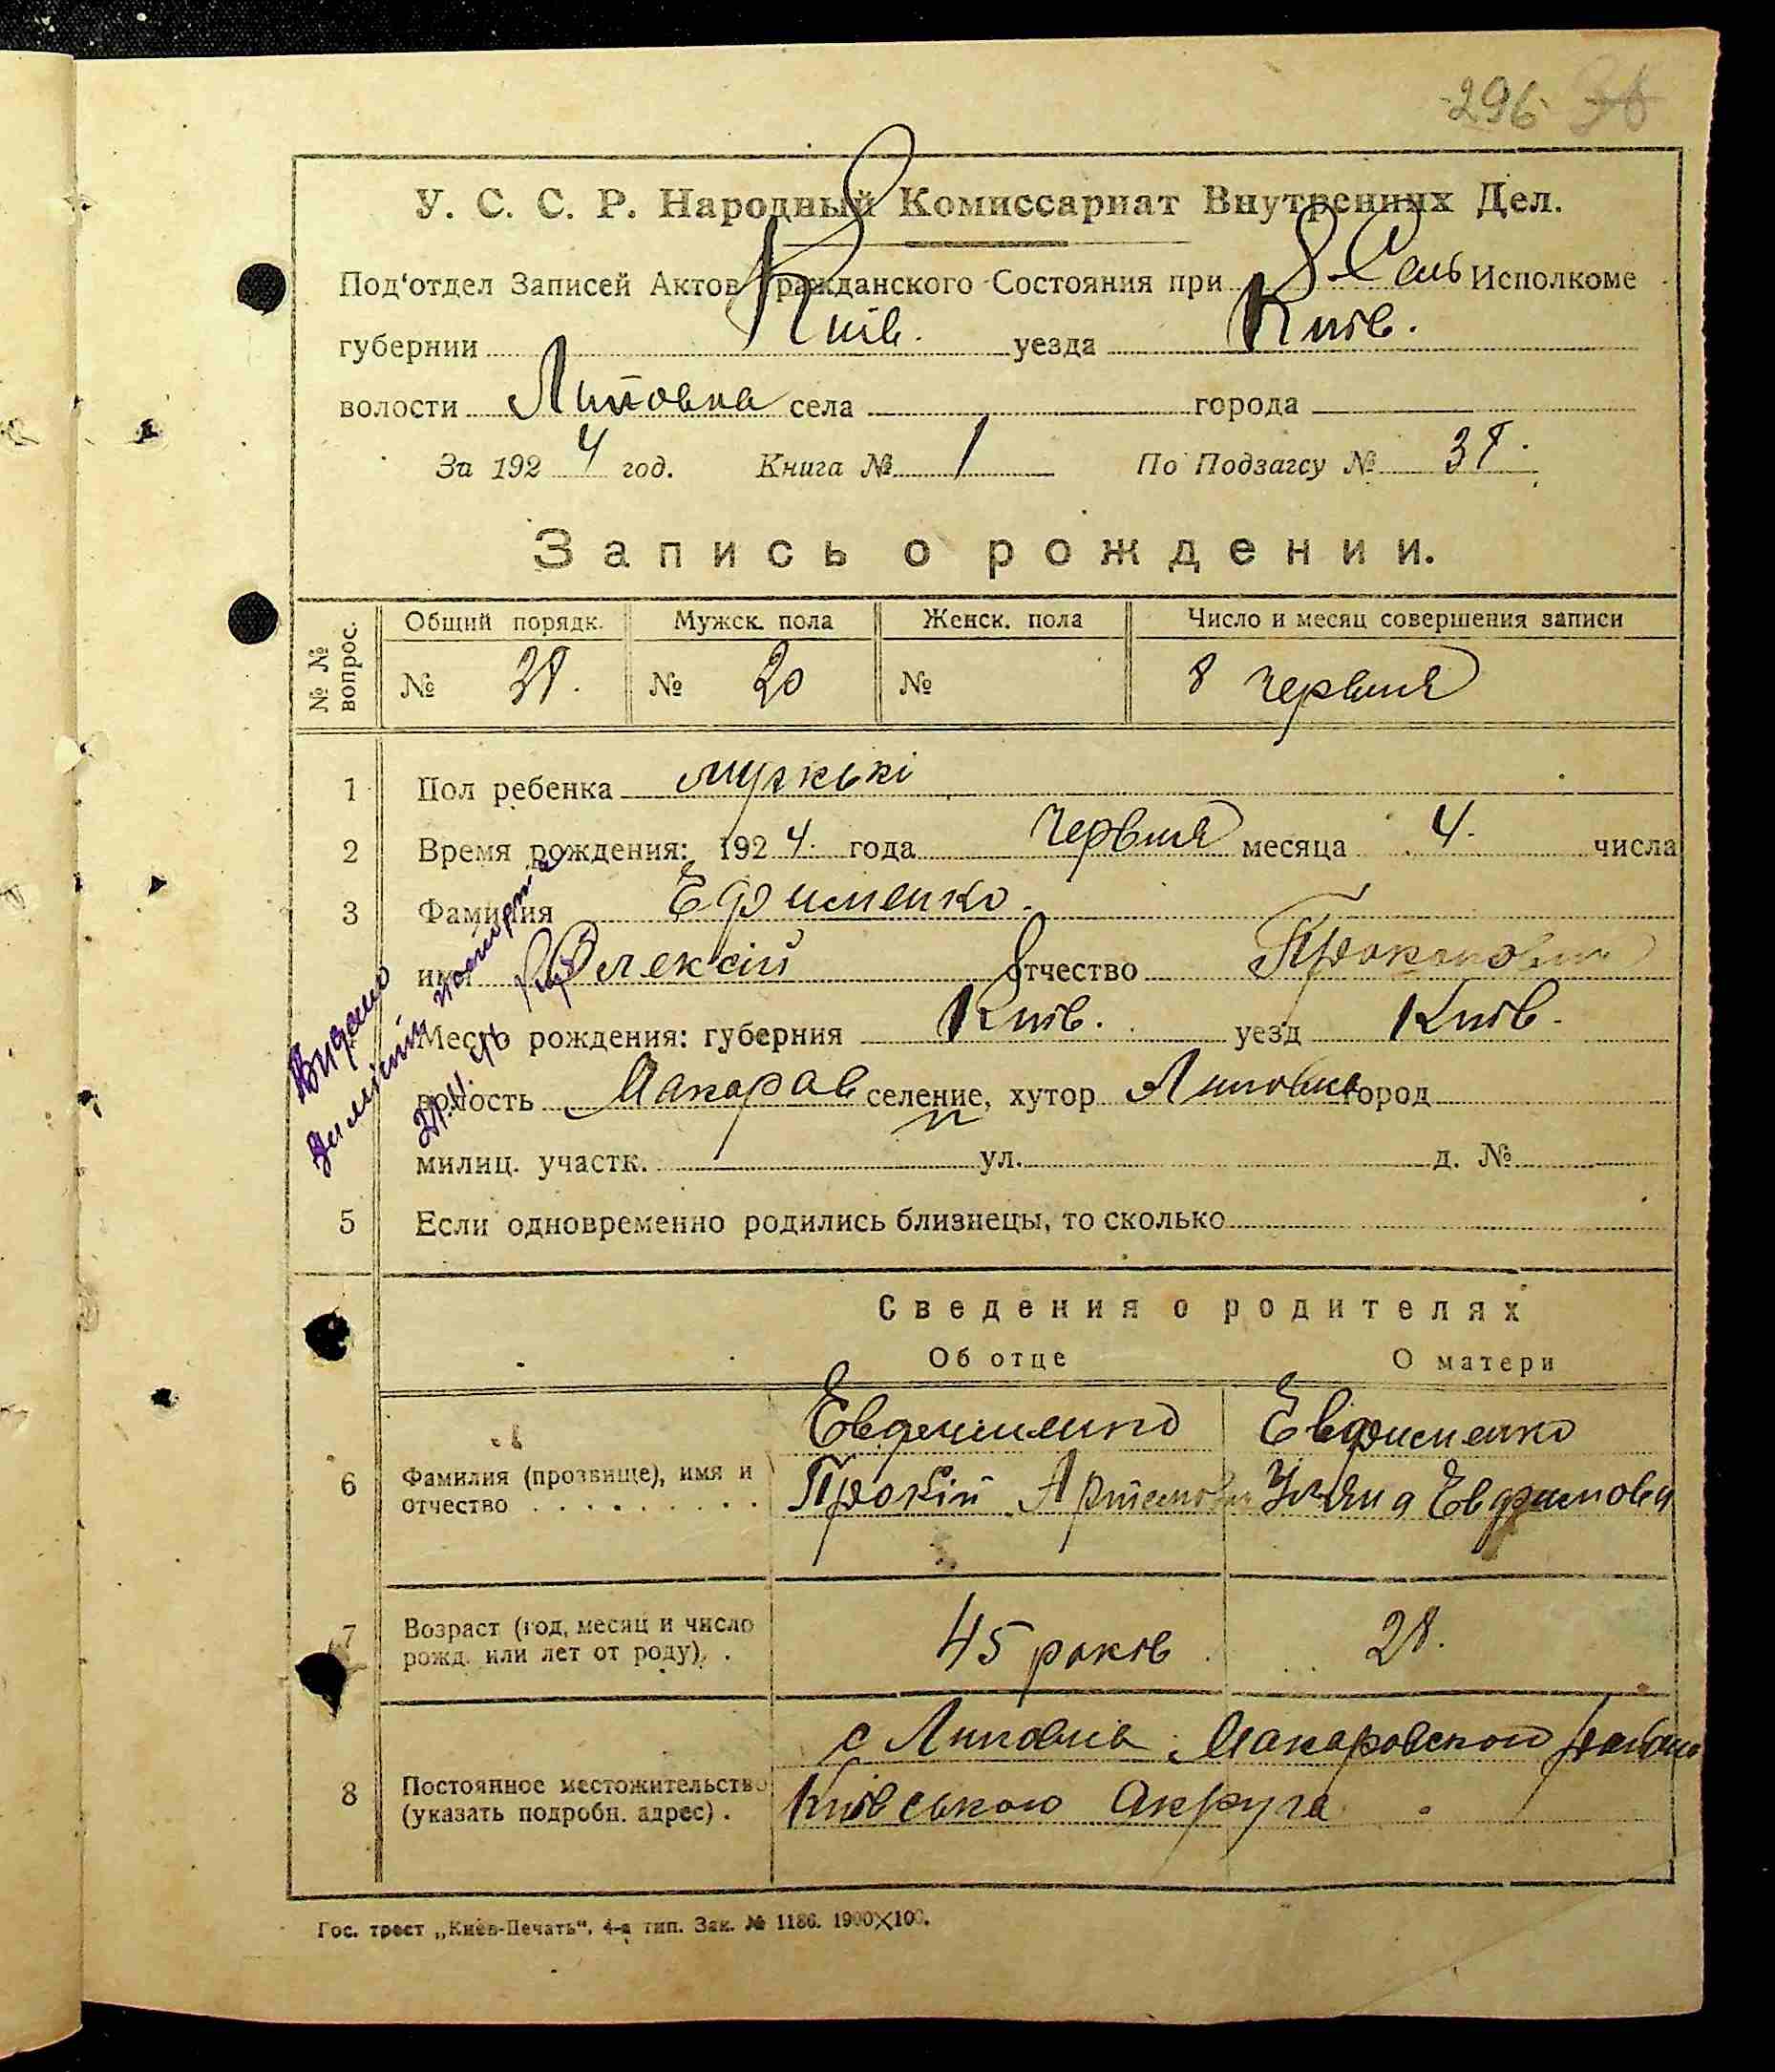 296
У. С. С. Р. Народный Комиссариат Внутренних Дел.
Под'отдел Записей Актов Гражданского Состояния при Сель Исполкоме
губернии Київ. уезда Київ.
волости Липовка села города
За 1924 год. Книга № 1 По Подзагсу № 38.
Запись о рождении.
№ № вопрос. Общий порядк. Мужск. пола Женск. пола Число и месяц совершения записи
№ 38. № 20 № 8 червня
1 Пол ребенка мужські
2 Время рождения: 1924. года Червня месяца 4. числа
3 Фамилия Ефименко.
имя Олексій отчество Прокопович
Место рождения: губерния Київ. уезд Київ.
волость Макаров селение, хутор Липовка город
милиц. участк. ул. д. №
Видано
5 Если одновременно родились близнецы, то сколько
Сведения о родителях
Об отце О матери
Евдименко Евфименко
6 Фамилия (прозвище), имя и отчество Прокіп Артемович Уляна Евфимовна
7 Возраст (год, месяц и число рожд. или лет от роду). 45 років 28.
с Липовка Макаровского района
8 Постоянное местожительство (указать подробн. адрес). Київського Округа
Гос. трест „Киев-Печать", 4-я тип. Зак. № 1186. 1900×100.